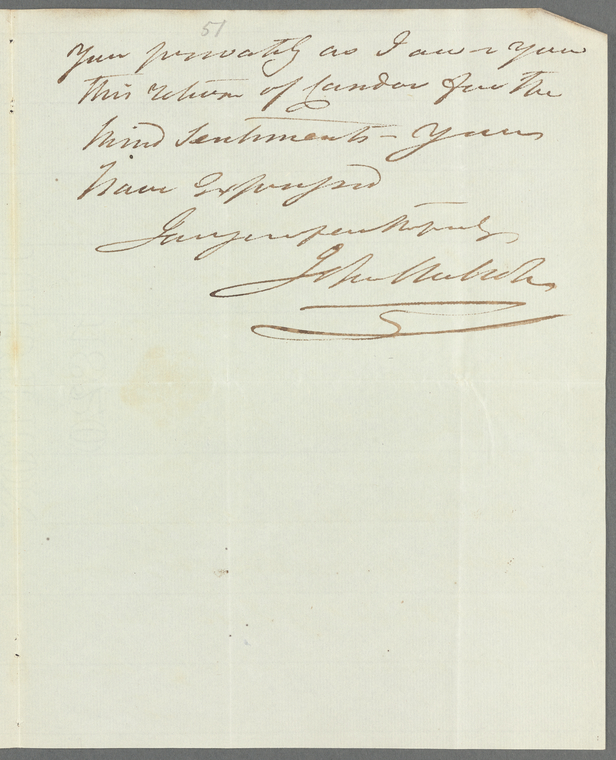 51
You privately as I owe you
this return of Candor for the
kind Sentiments - You
have Expressed
I am your
John